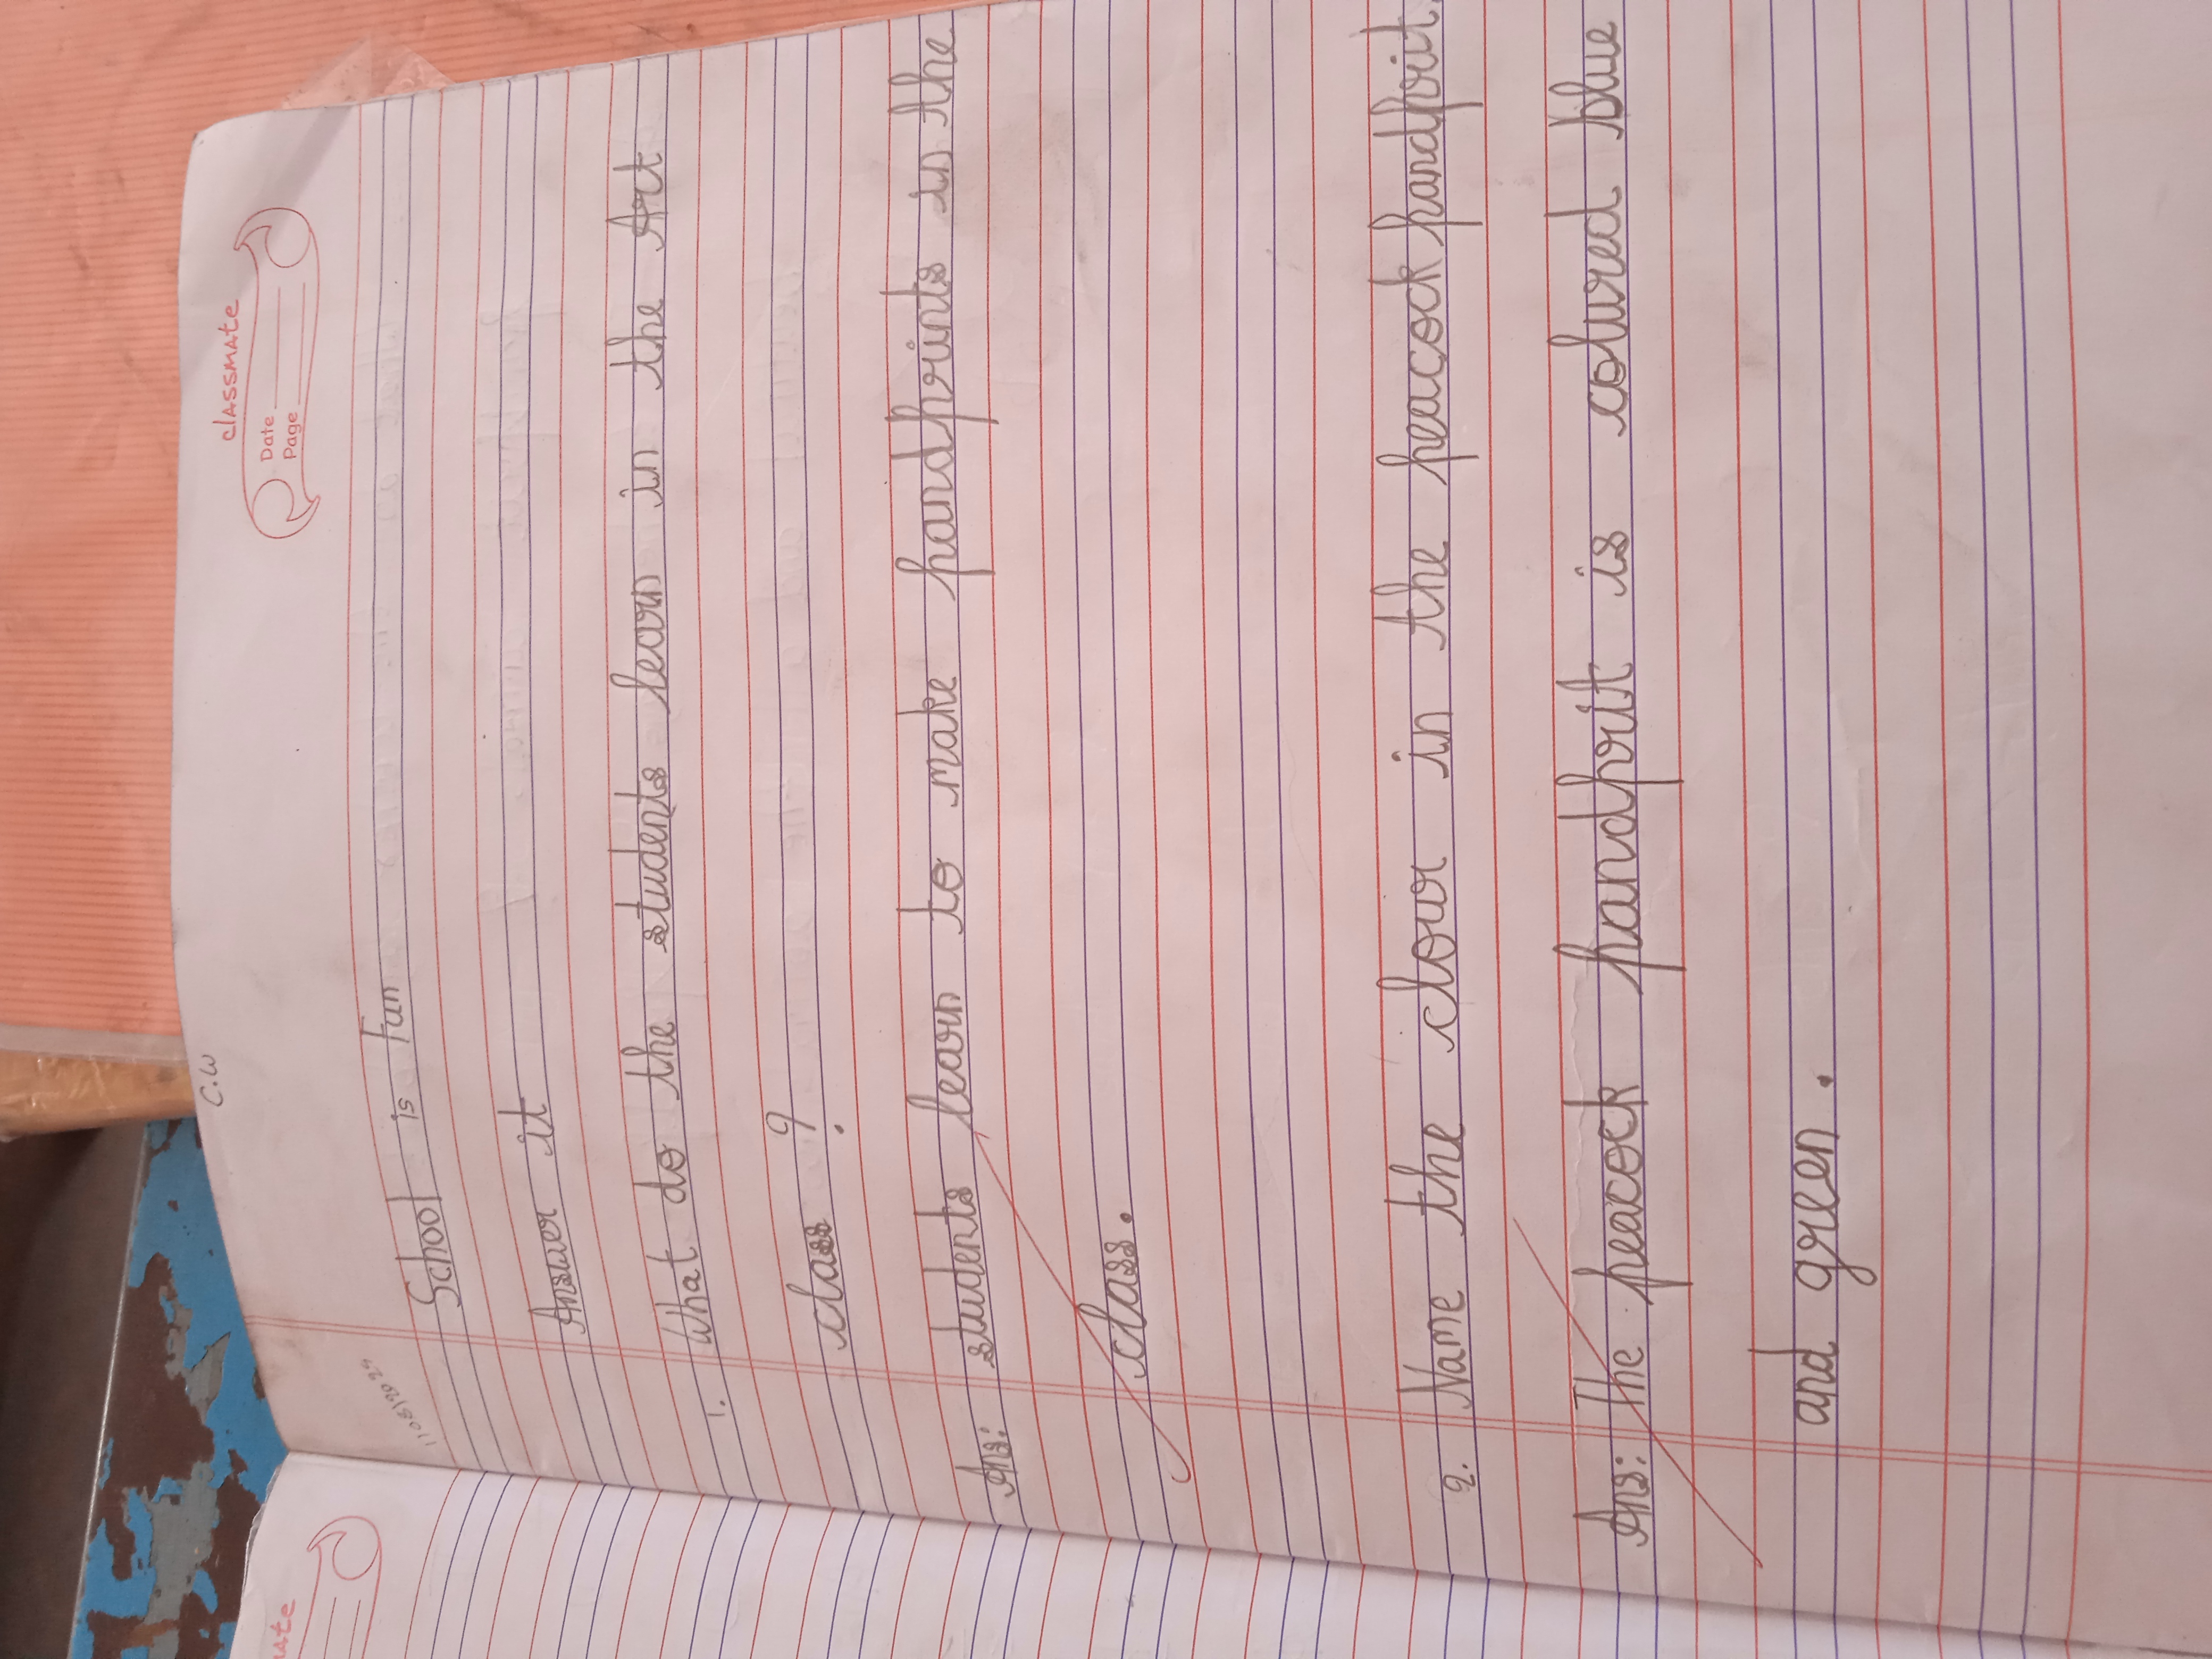 C.W
classmate
Date
Page
School is Fun
Answer it
1. What do the students learn in the Art
class ?
Ans: students learn to make handprints is the
class.
2. Name the clour in the peacock handprit.
Ans: The peacock handprit is coloured blue
and green.